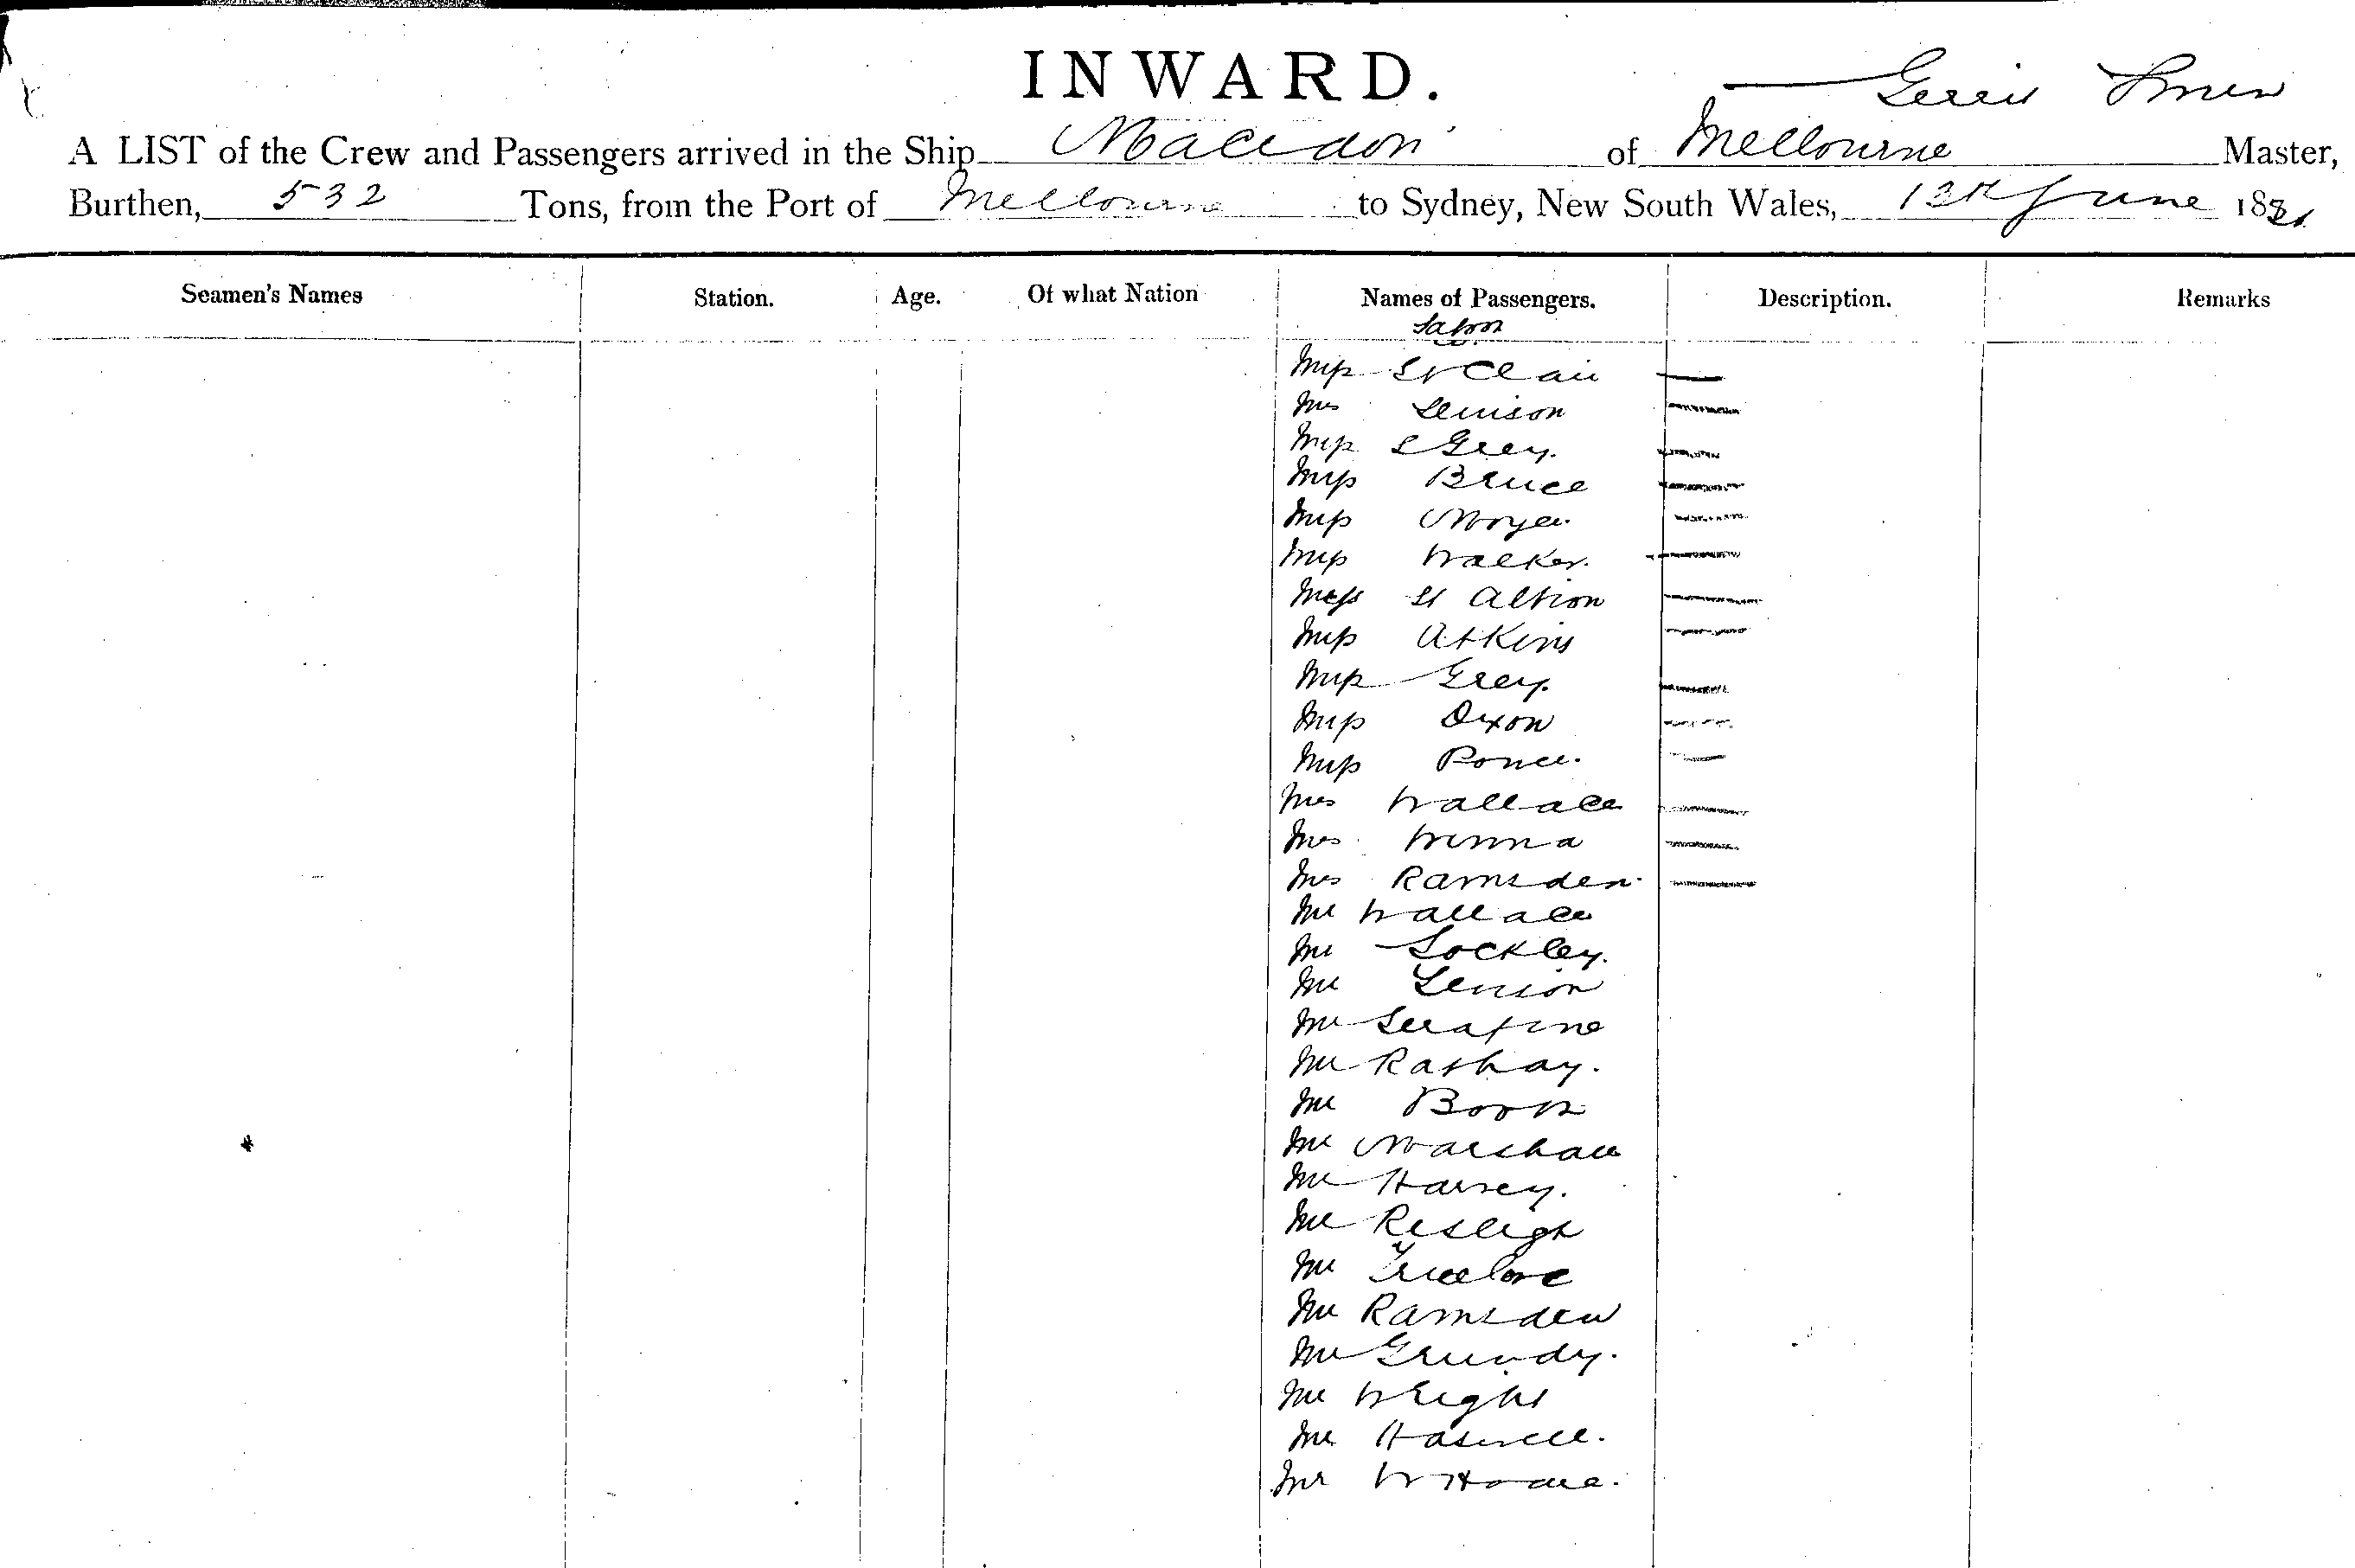 INWARD.
A LIST of the Crew and Passengers arrived in the Ship Macedon of Melbourne Master,
Burthen, 532 Tons, from the Port of Melbourne to Sydney, New South Wales, 13th June 1881
Seamen's Names Station. Age. Of what Nation Names of Passengers. Description. Remarks
Miss St Clair
Mrs
Miss Grey.
Miss Bruce
Miss
Miss Walker.
Miss St Albion
Miss Atkins
Miss Grey.
Miss Dixon
Miss
Mrs Wallace
Mrs
Mrs Ramsden
Mr Wallace
Mr Lockley.
Mr
Mr Serafine
Mr Rashay.
Mr Booth
Mr Marshall
Mr Harvey.
Mr Resleigh
Mr Truelove
Mr Ramsden
Mr Grundy.
Mr Wright
Mr Haswell.
Mr W Hoare.